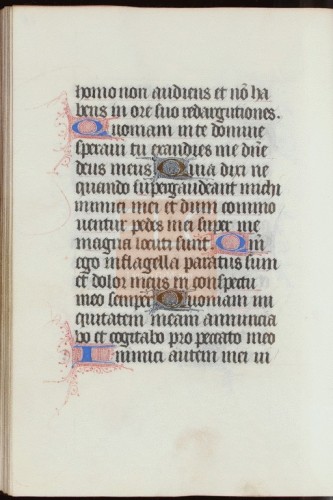 homo non audiens et nō ha
bens in ore suo redargutiones.
Quoniam in te domine
speraui tu exaudies me dn̄e
deus meus Quia dixi ne
quando supergaudeant michi
inimici mei et dum commo
uentur pedes mei super me
magna locuti sunt. Qm̄
ego in flagella paratus sum
et dolor meus in conspectu
meo semper Quoniam ini
quitatem meam annuncia
bo et cogitabo pro peccato meo
Inimici autem mei ui